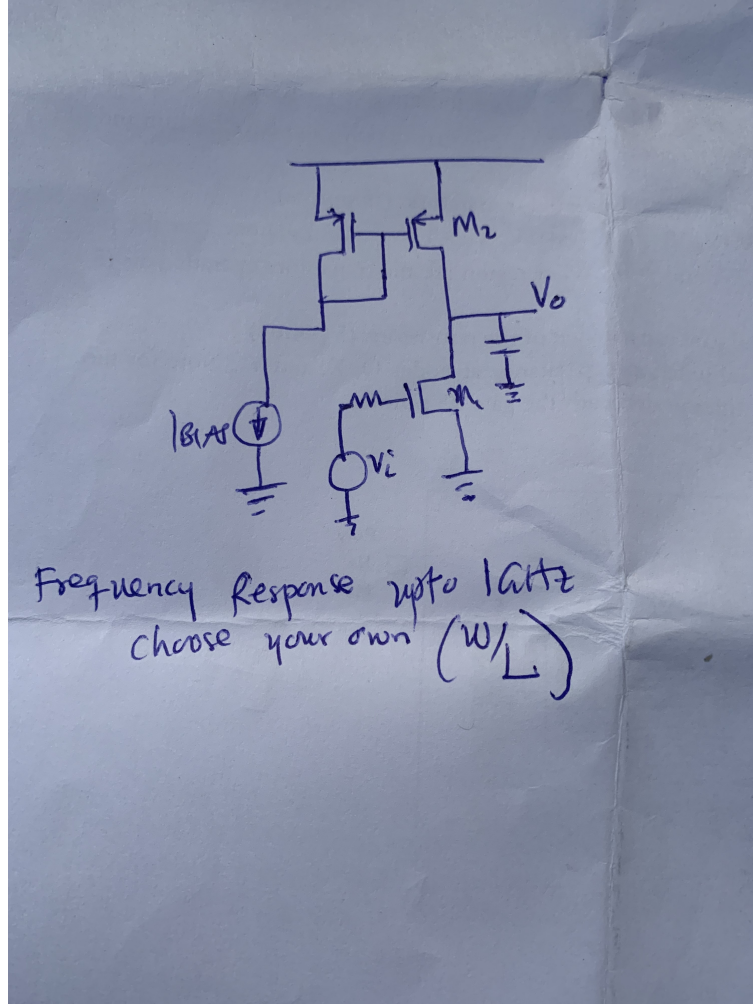 M₂
Vo
IBIAS
M₁
Vi
Frequency Response upto 1GHz
choose your own (W/L)